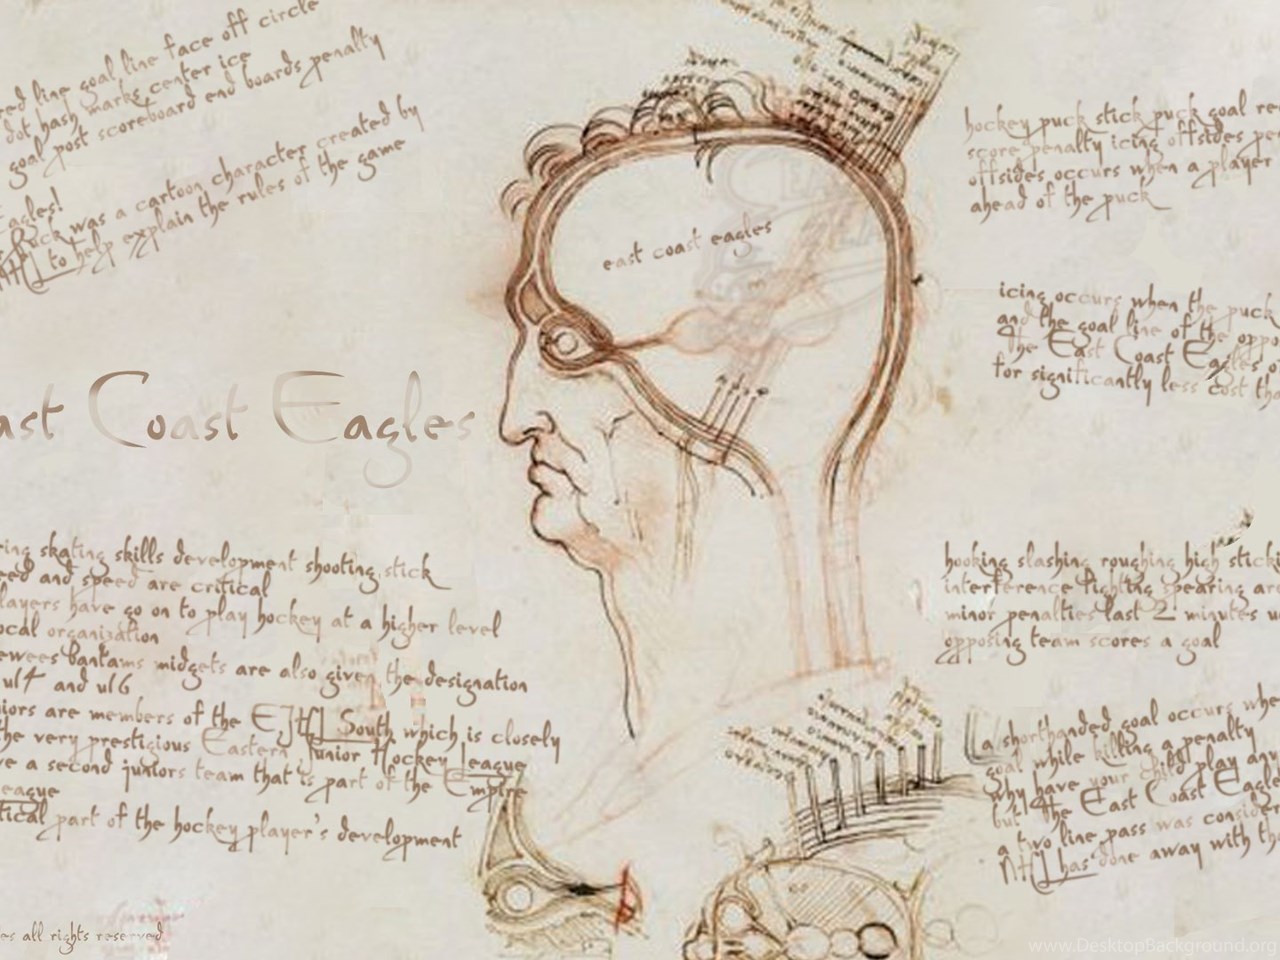 red line goal line face off circle
dot hash marks center ice
goal post scoreboard end boards penalty
Eagles!
Puck was a cartoon character created by
NHL to help explain the rules of the game
east coast eagles
hockey puck stick puck goal re
score penalty icing offsides pe
offsides occurs when a player
ahead of the puck
icing occurs when the puck
and the goal line of the oppo
The East Coast Eagles o
for significantly less cost tha
ast Coast Eagles
ing skating skills development shooting stick
eed and speed are critical
layers have go on to play hockey at a higher level
ocal organization
eewees bantams midgets are also given the designation
u14 and u16
niors are members of the EJHL South which is closely
the very prestigious Eastern Junior Hockey League
ve a second juniors team that is part of the Empire
League
tical part of the hockey player's development
hooking slashing roughing high sticki
interference fighting spearing are
minor penalties last 2 minutes u
opposing team scores a goal
a shorthanded goal occurs whe
goal while killing a penalty
why have your child play any
but the East Coast Eagle
a two line pass was consider
NHL has done away with th
es all rights reserved
www.DesktopBackground.org